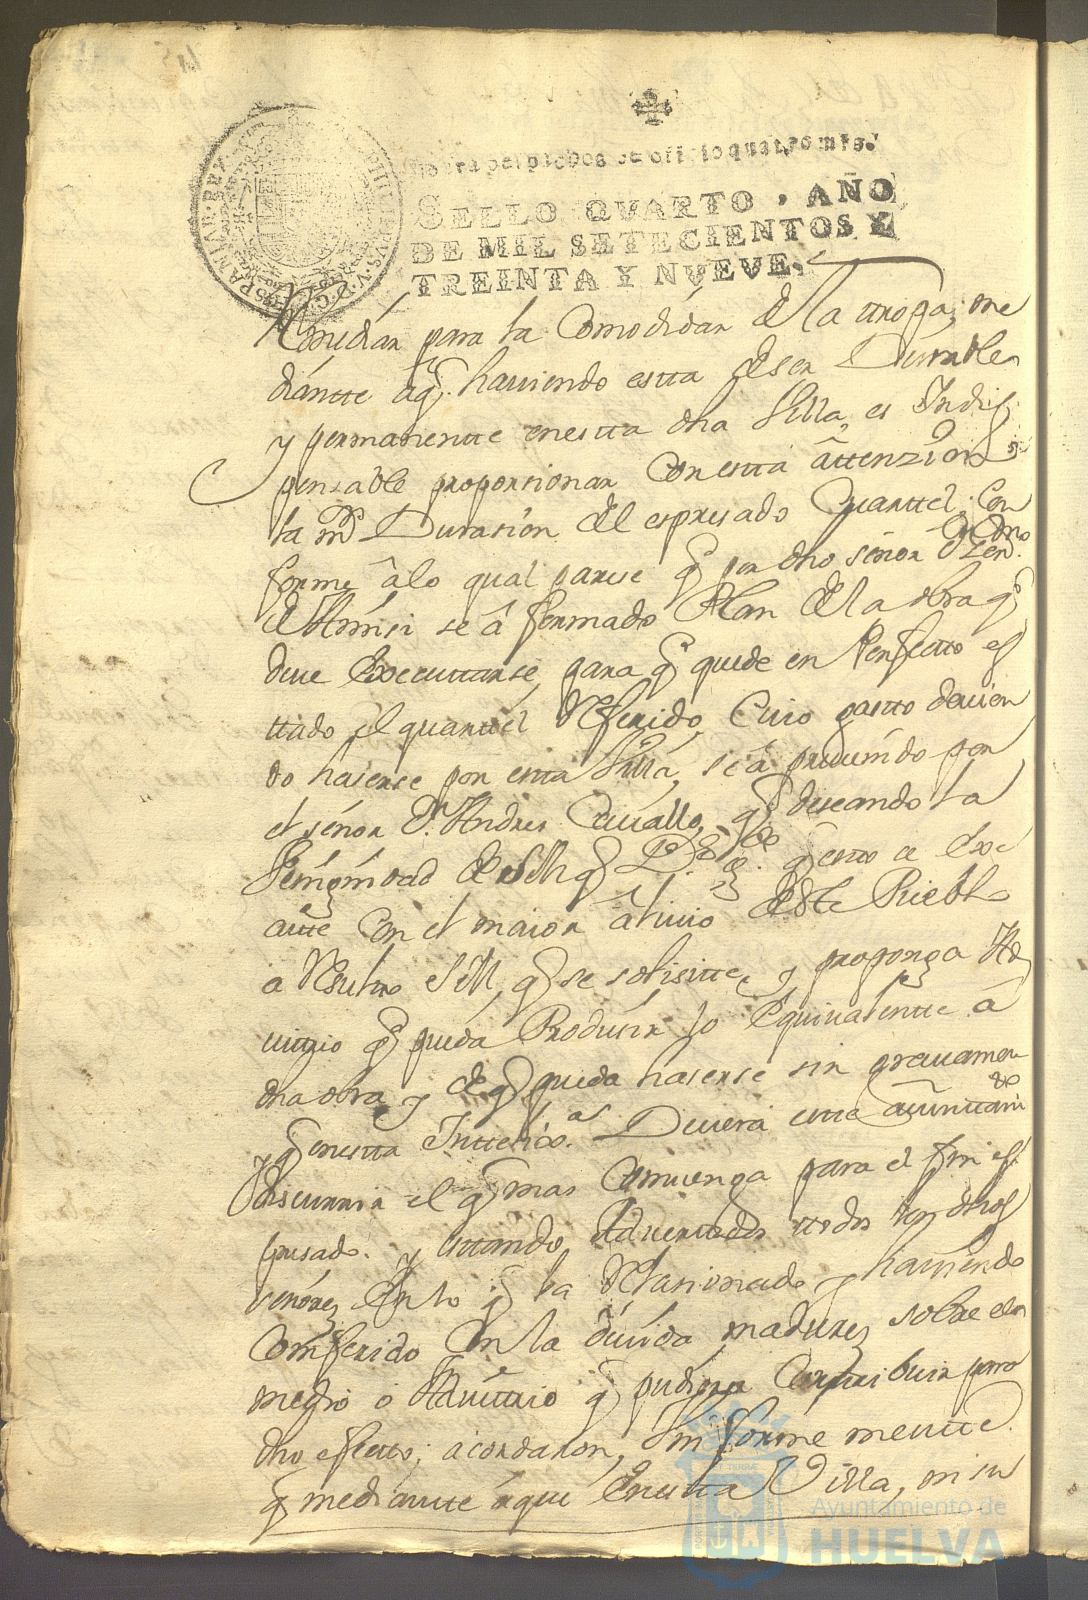 PHILIPPUS·V·D·G· HISPANIAR·REX·
Para despachos de oficio quatro mrs.
SELLO QVARTO, AÑO
DE MIL SETECIENTOS Y
TREINTA Y NVEVE.
para la Comodidad de la tropa, me
diantte aq.^e haviendo estta de ser Durable
y permanentte en estta dha Villa, es Indis
pensable proporsionar Con estta attenzion
la m^or Durasion del espresado Quarttel; Con
forme a lo qual parese q^e por dho señor
se a formado Plan de la obra q^e
deve Executtarse, para q^e quede en Perfectto es
ttado el quarttel Referido, Cuio gastto devien
do haserse por estta Villa, se a prevenido por
el señor D.^n Andres Cavallo, q^e deseando la
de SM q^e D.^s g.^e q^e estto se Exe
cutte Con el maior alivio deste Pueblo
a Resuelto SM, q^e se solisitte, y proponga Ar
vitrio q^e pueda Produsir lo Equivalentte a
dha obra y de q^e pueda haserse sin gravamen
y q^e en estta Intteligs.^a Deviera estte Aiunttami^to
discurrir el q^e mas Convenga para el fin es
presado. y esttando Adverttidos ttodos los dhos
señores En lo q^e ba Relasionado y haviendo
Comferido Con la devida madures sobre el
medio o Advitrio q^e pudiera Contribuir para
dho efectto; acordaron, Uniformementte
q^e mediantte aque En estta Villa, ni su
Ayuntamiento de
HUELVA